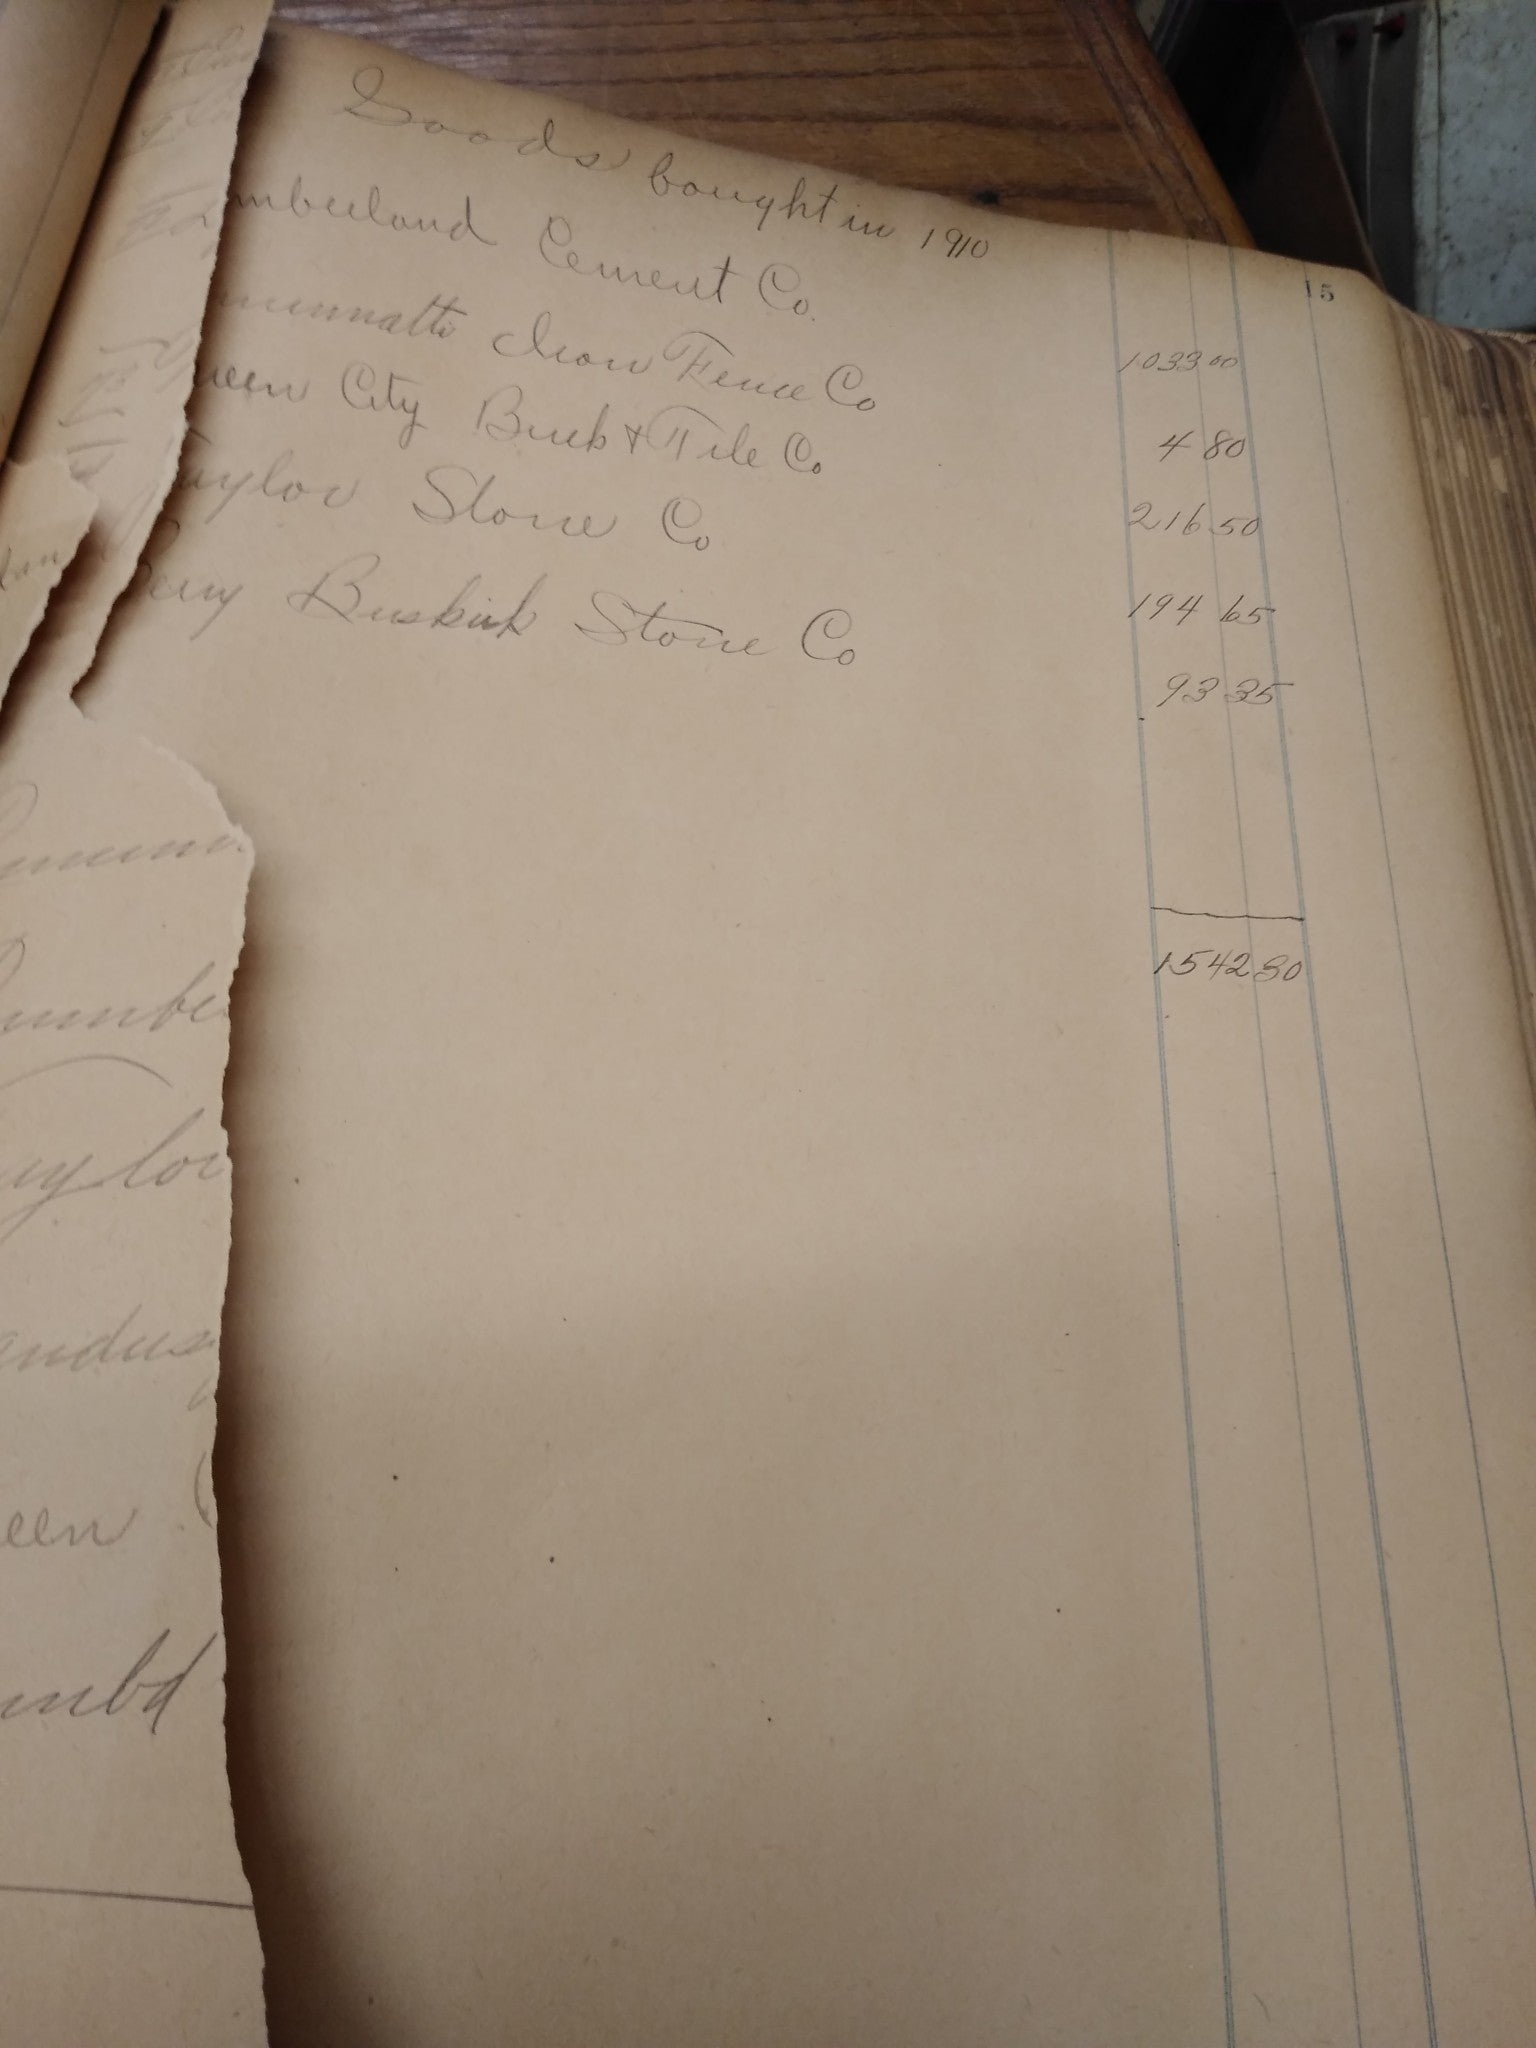 Goods bought in 1910
15
umberland Cement Co. 1033 00
incinnatti Iron Fence Co 4 80
ueen City Brick & Tile Co 216 50
Taylor Stone Co 194 65
Perry Buskirk Stone Co 93 35
1542 30
umbe
aylor
andus
een
mbd